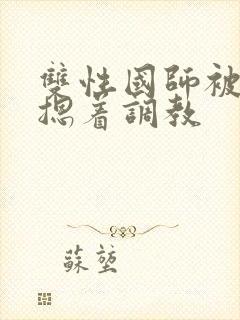 雙性國師被
摁着調教
蘇堃